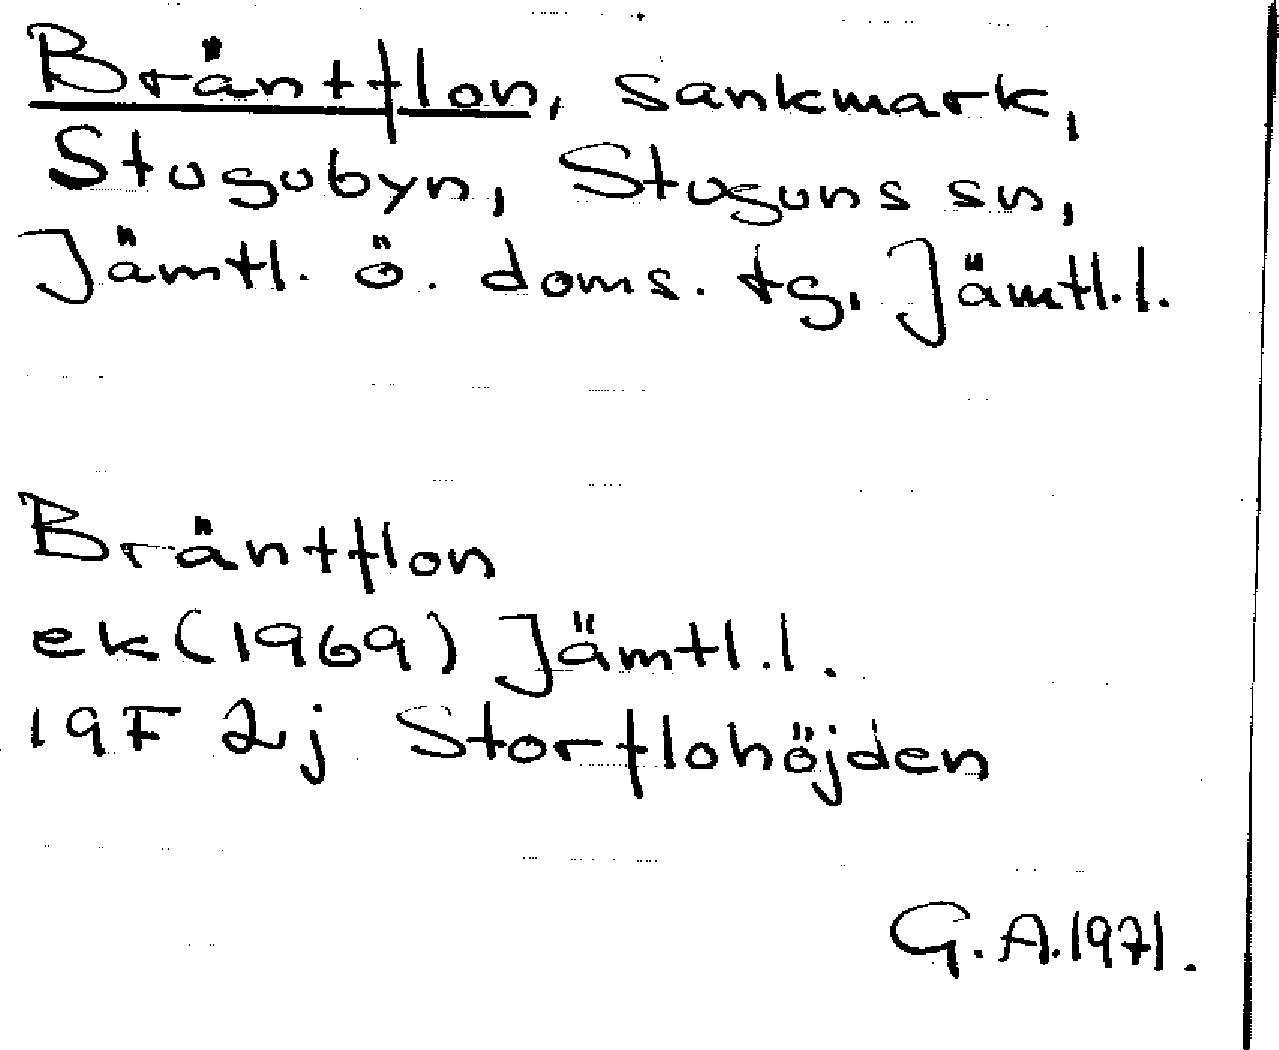 Bräntflon, sankmark,
Stugubyn, Stuguns sn,
Jämtl. ö. doms. tg, Jämtl.l.
Bräntflon
ek(1969) Jämtl.l.
19F 2j Storflohöjden
G.A.1971.